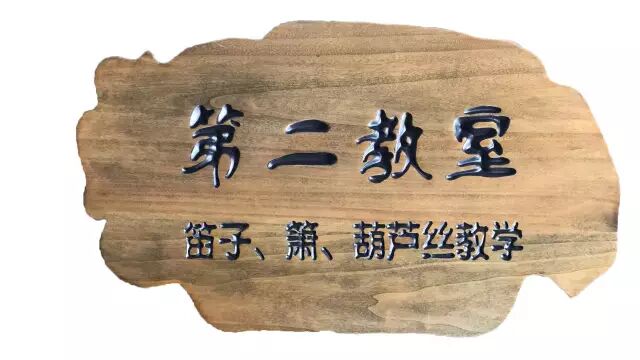 第二教室
笛子、箫、葫芦丝教学